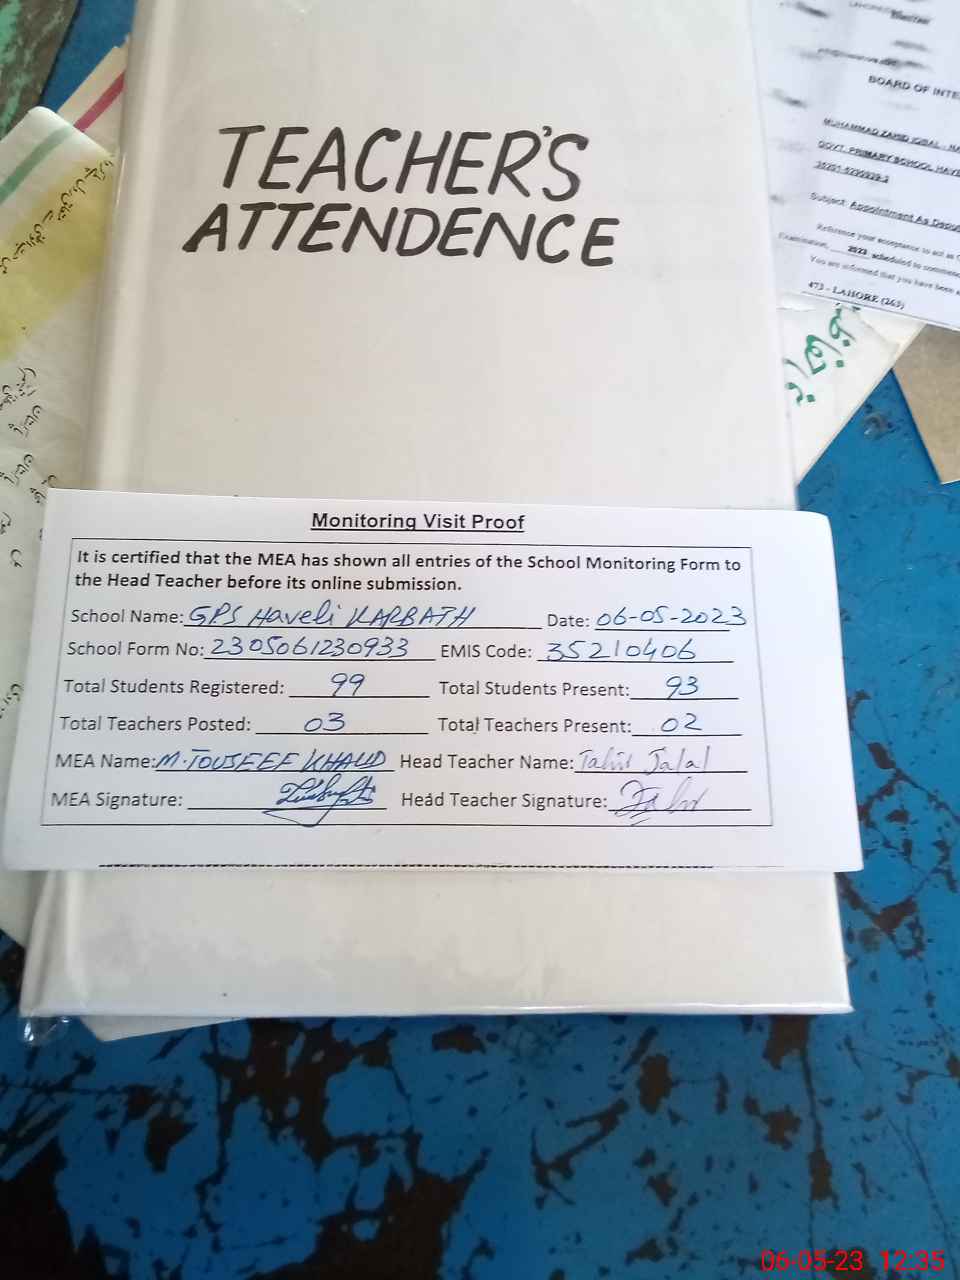 TEACHER'S
ATTENDENCE
BOARD OF INTE
MUHAMMAD ZAHID IQBAL
GOVT. PRIMARY SCHOOL HAVE
35201-5290929-3
Subject: Appointment As Deput
Reference your acceptance to act as
Examination, 2023 scheduled to commence
You are informed that you have been a
473 - LAHORE (263)
Monitoring Visit Proof
It is certified that the MEA has shown all entries of the School Monitoring Form to
the Head Teacher before its online submission.
School Name: GPS Haveli KARBATH Date: 06-05-2023
School Form No: 2305061230933 EMIS Code: 35210406
Total Students Registered: 99 Total Students Present: 93
Total Teachers Posted: 03 Total Teachers Present: 02
MEA Name: M. TOUSEEF KHALID Head Teacher Name: Tahir Jalal
MEA Signature: Head Teacher Signature:
06-05-23 12:35